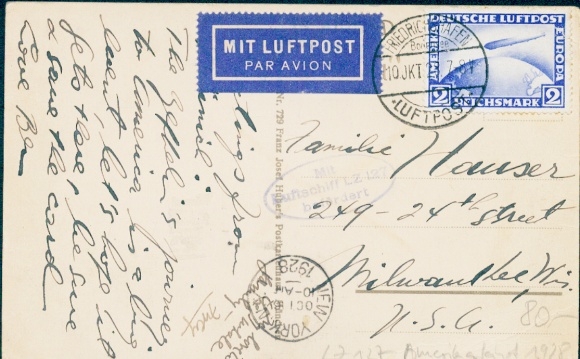 MIT LUFTPOST
PAR AVION
FRIEDRICHSHAFEN
Bodensee
10 OKT
7-8V
LUFTPOST
DEUTSCHE LUFTPOST
AMERIKA
EUROPA
2 REICHSMARK 2
Familie Hauser
249-24th Street
Milwaukee, Wis.
U.S.A.
Mit
Luftschiff LZ 127
befördert
Nr. 729 Franz Josef Huber's
NEW YORK
OCT 16
10-AM
1928
greetings from
The Zeppelin's journey
to America is a big
event, let's hope it
gets there, be sure
& save the card
Love Ben
80-
LZ 127 Amerikafahrt 1928